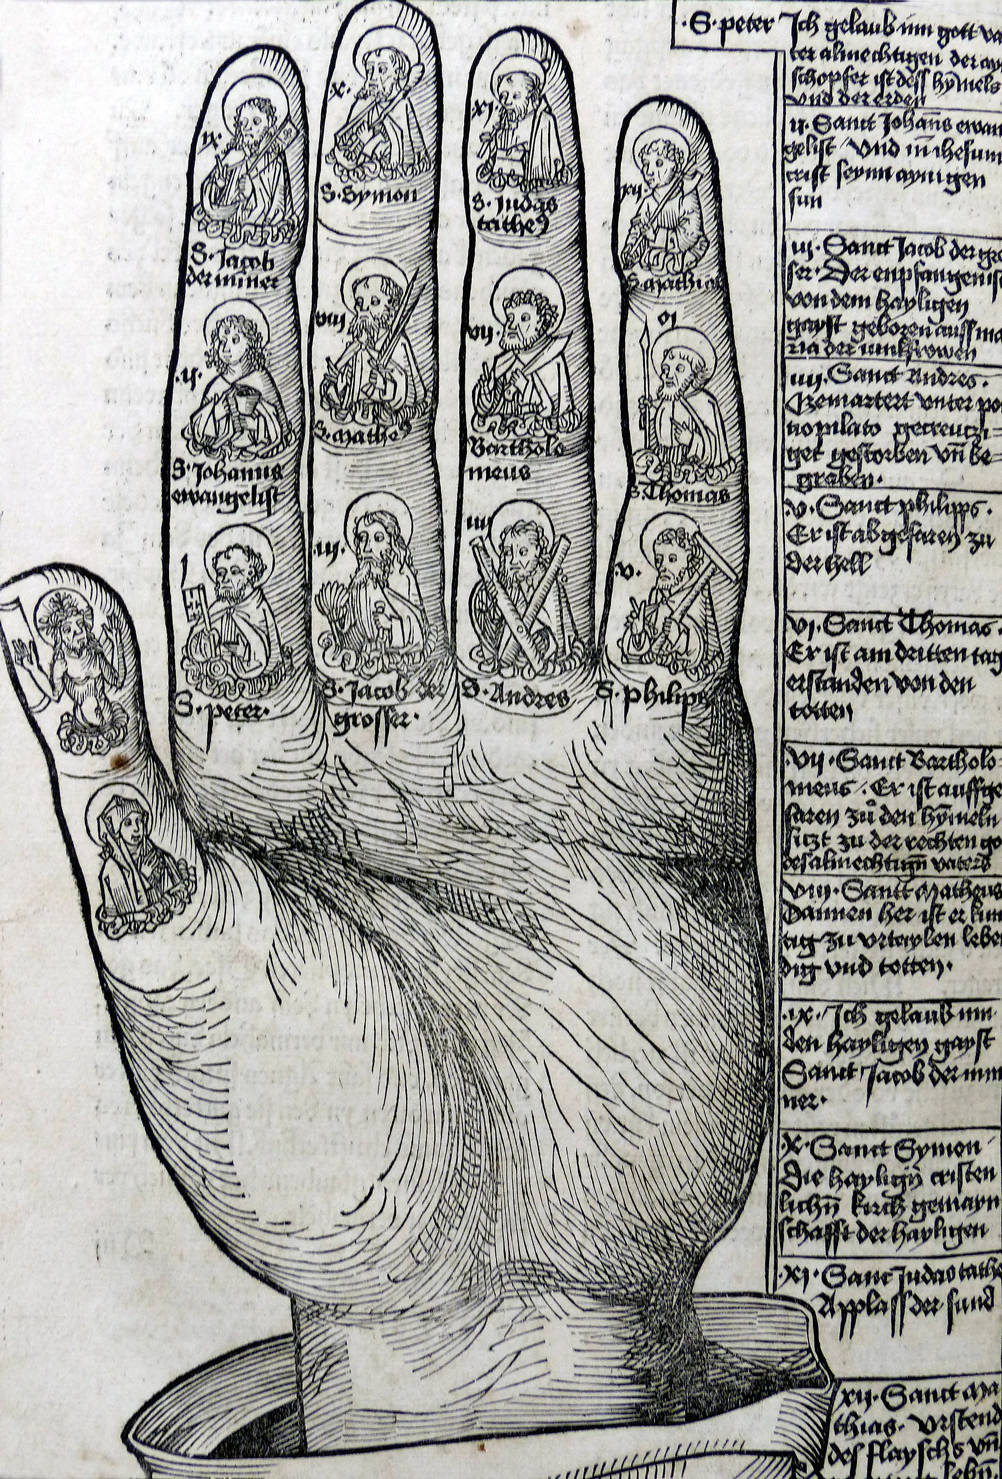 ix.
S. Jacob
der miner
.ii.
S. Johanns
ewangelist
I
S. peter.
x.
S. Symon
viii
S. Mathe9
.iii.
S. Jacob der
grosser.
xi
S. Judas
tathe9
vii.
Bartholo
meus
iiii
S. Andres
xii
S. Mathias
vi
S. Thomas
v.
S. philips
.S. peter Ich gelaub inn gott va
ter almechtigen der ayn
schopfer ist dess hymels
vnd der erden
ii. Sanct Johans ewan
gelist Vnd in ihesum
crist seynn aynigen
sun
iii. Sanct Jacob der gro
ser. Der enpfangen ist
von dem hayligen
gayst geboren auss ma
ria der iunkfrowen
iiii. Sanct Andres.
Gemartert vnter po
nopilato gecreutzi=
get gestorben vn̄ be=
graben.
v. Sanct philipps.
Er ist abgefaren zu
der hell
vi. Sanct Thomas.
Er ist am dritten tag
erstanden von den
totten
.vii. Sanct Bartholo
meus. Er ist auffge
faren zů den hymeln
sitzt zu der rechten go
des almechtign̄ vaters
viii. Sanct Matheus
Dannen her ist er kün
tig zu vrtaylen leben
dig vnd totten.
.ix. Ich gelaub inn
den hayligen gayst
Sanct Jacob der min
ner.
x. Sanct Symon
Die haylign̄ cristen
lichn̄ kirch gemayn
schafft der hayligen
.xi. Sanc Judas tathe
Applass der sund
xii. Sanct Ma
thias. Vrstend
des flayschs vn̄